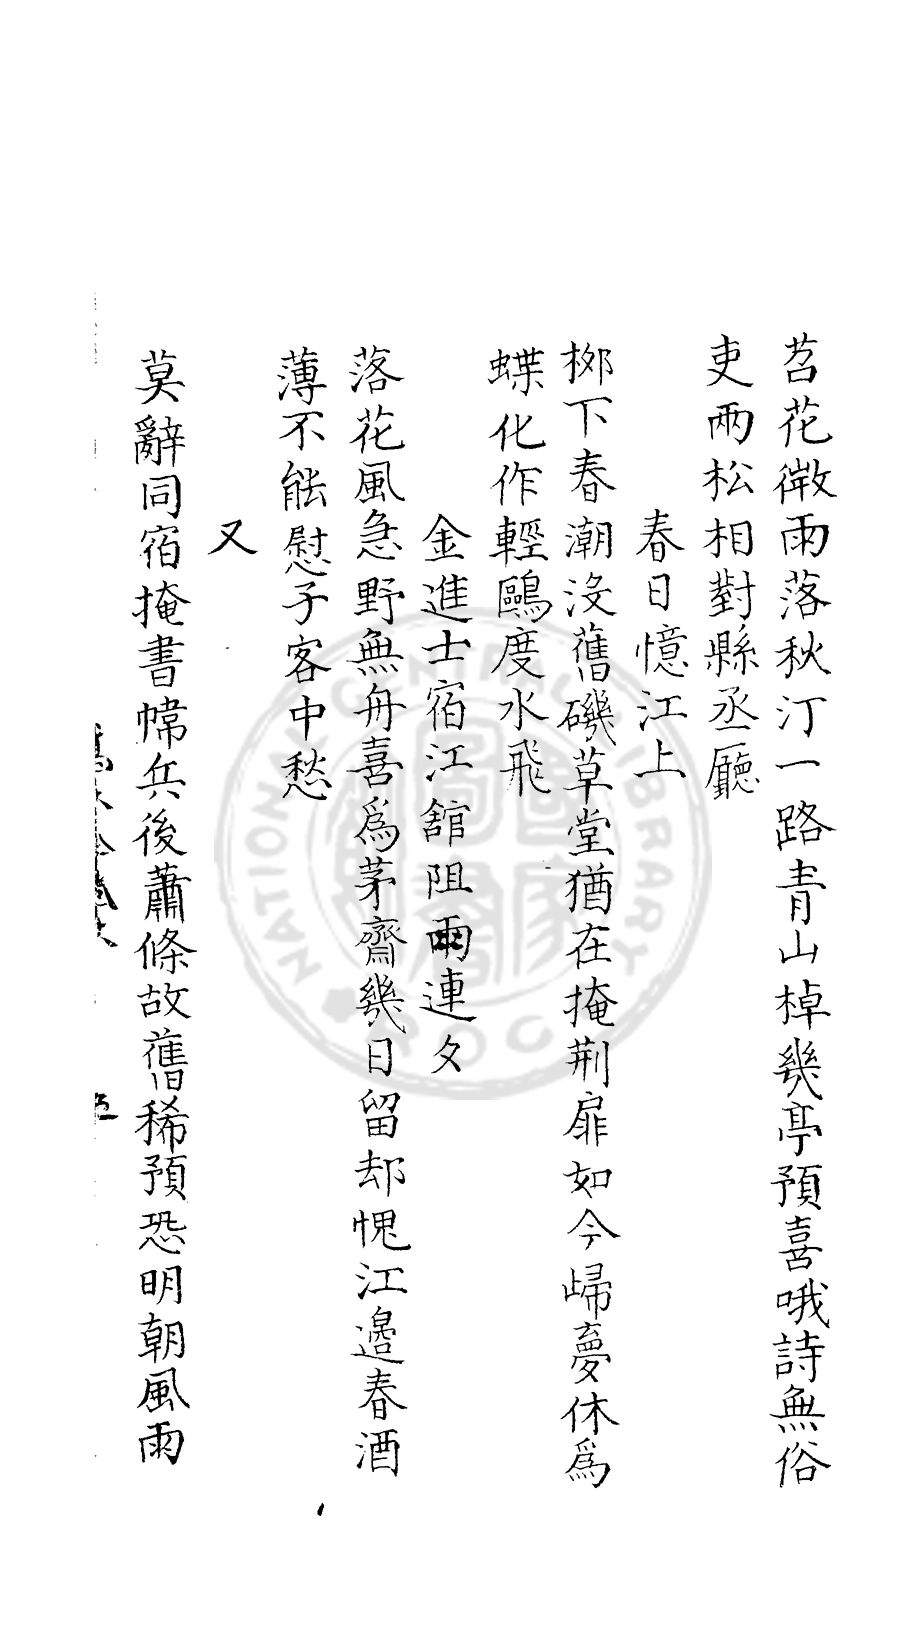 苕花微雨落秋汀一路青山棹幾亭預喜哦詩無俗
吏兩松相對縣丞廳
春日憶江上
栁下春潮沒舊磯草堂猶在掩荆扉如今歸夢休爲
蝶化作輕鷗度水飛
金進士宿江舘阻雨連夕
落花風急野無舟喜爲茅齋幾日留却愧江邊春酒
薄不能慰子客中愁
又
莫辭同宿掩書幃兵後蕭條故舊稀預恐明朝風雨
五
NATIONAL CENTRAL LIBRARY
ROC